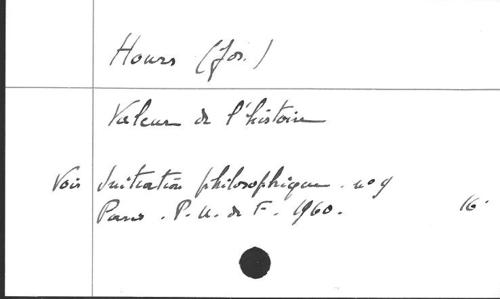 Hours (Jos.)
Valeur de l'histoire
Voir Initiation philosophique. no 9
Paris. P. U. de F. 1960. 16